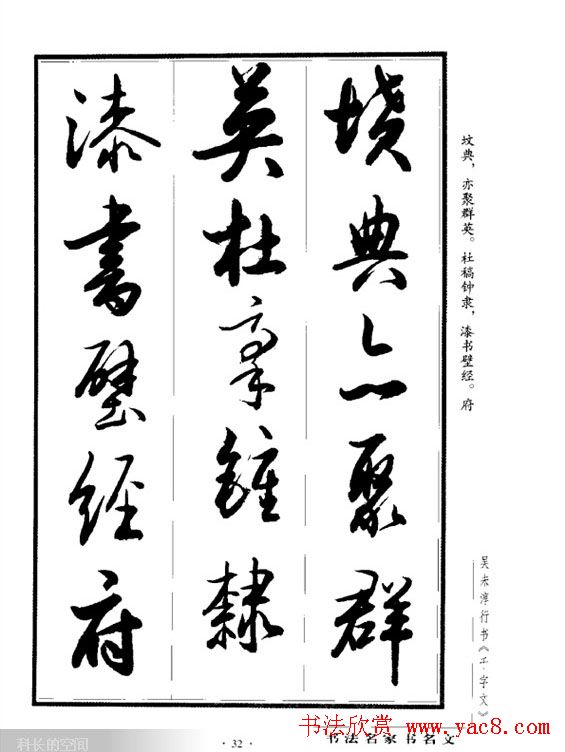 墳典亦聚群
英杜稾鍾隸
漆書壁經府
坟典，亦聚群英。杜稿钟隶，漆书壁经。府
吴未淳行书《千字文》
书法名家书名文
· 32 ·
书法欣赏 www.yac8.com
科长的空间